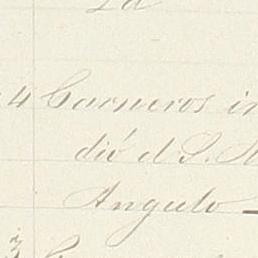 4 Carneros in
dió el S. A
Angulo
3